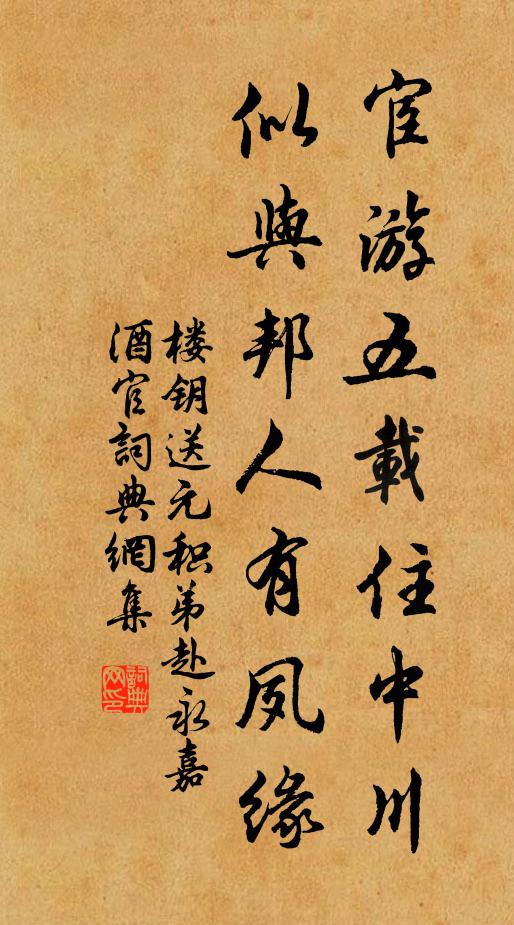 宦游五載住中川
似與邦人有夙緣
楼钥送元积弟赴永嘉
酒官詞典網集
詞典
网印